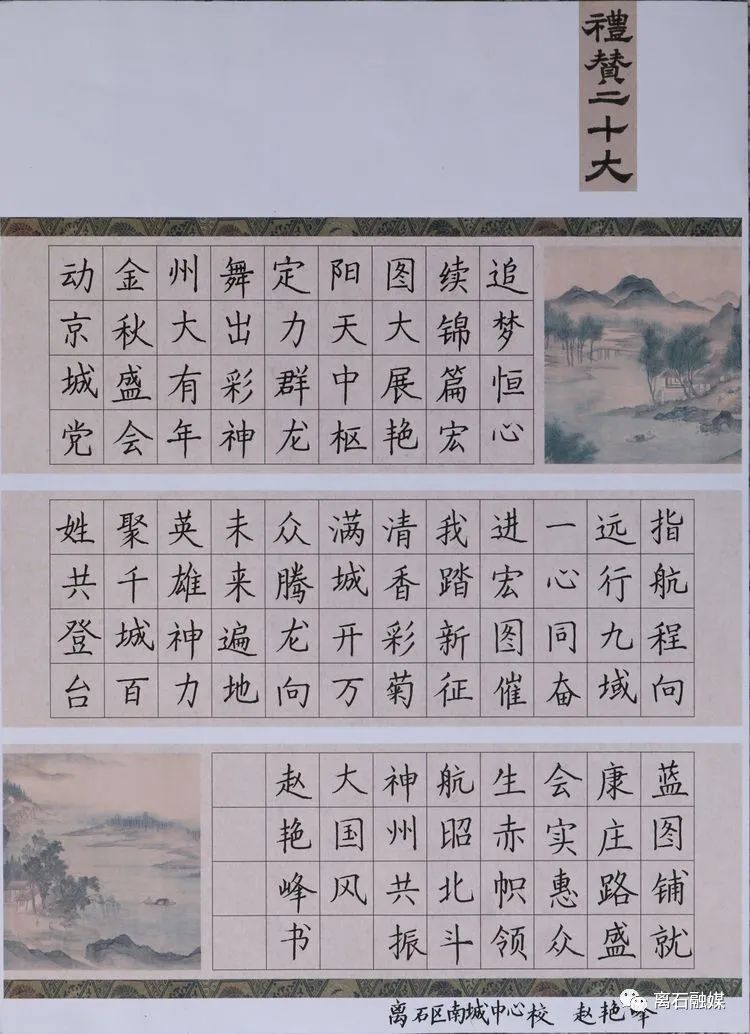 禮赞二十大
追梦恒心
续锦篇宏
图大展艳
阳天中枢
定力群龙
舞出彩神
州大有年
金秋盛会
动京城党
指航程向
远行九域
一心同奋
进宏图催
我踏新征
清香彩菊
满城开万
众腾龙向
未来遍地
英雄神力
聚千城百
姓共登台
蓝图铺就
康庄路盛
会实惠众
生赤帜领
航昭北斗
神州共振
大国风
赵艳峰书
离石区南城中心校 赵艳峰
离石融媒